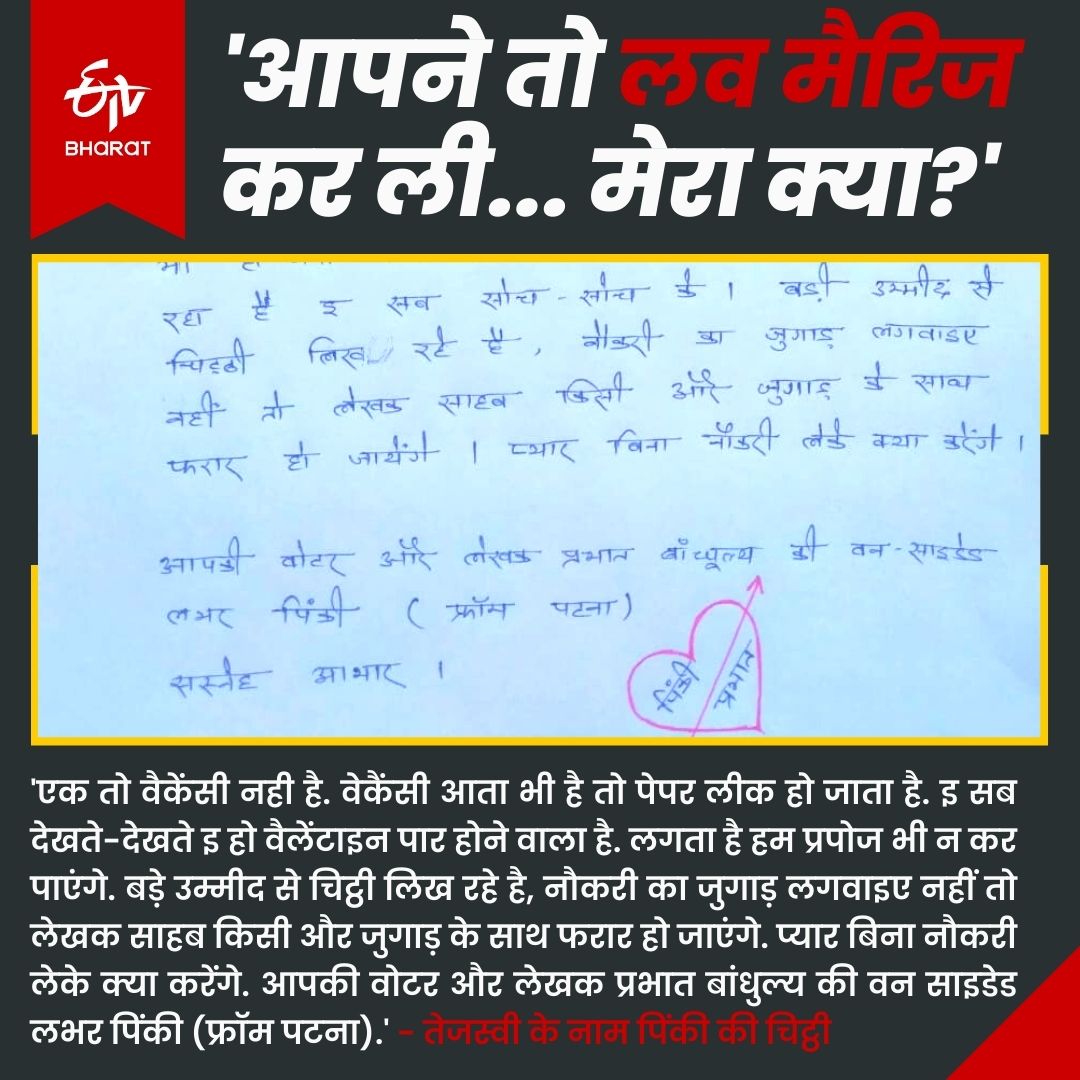 ETV
BHARAT
'आपने तो लव मैरिज
कर ली... मेरा क्या?'
रहा है इ सब सोच-सोच के । बड़ी उम्मीद से
चिट्ठी लिख रहे है, नौकरी का जुगाड़ लगवाइए
नहीं तो लेखक साहब किसी और जुगाड़ के साथ
फरार हो जायेंगे । प्यार बिना नौकरी लेके क्या करेंगे ।
आपकी वोटर और लेखक प्रभात बाँधुल्य की वन-साइडेड
लभर पिंकी ( फ्रॉम पटना)
सस्नेह आभार ।
पिंकी प्रभात
'एक तो वैकेंसी नही है. वेकैंसी आता भी है तो पेपर लीक हो जाता है. इ सब
देखते-देखते इ हो वैलेंटाइन पार होने वाला है. लगता है हम प्रपोज भी न कर
पाएंगे. बड़े उम्मीद से चिट्ठी लिख रहे है, नौकरी का जुगाड़ लगवाइए नहीं तो
लेखक साहब किसी और जुगाड़ के साथ फरार हो जाएंगे. प्यार बिना नौकरी
लेके क्या करेंगे. आपकी वोटर और लेखक प्रभात बांधुल्य की वन साइडेड
लभर पिंकी (फ्रॉम पटना).' - तेजस्वी के नाम पिंकी की चिट्ठी